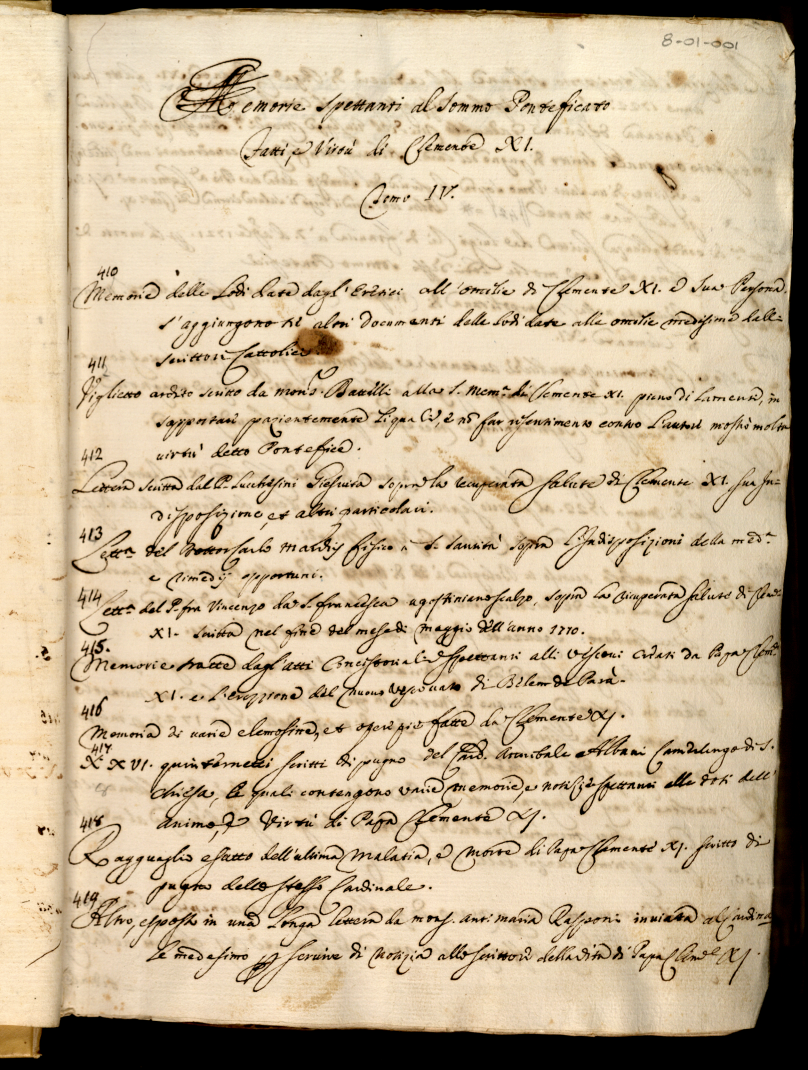 8-01-001
Memorie spettanti al Sommo Ponteficato
Fatti, e Virtù di Clemente XI.
Tomo IV.
410
Memorie delle Lodi date dagl' Eretici all' omilie di Clemente XI. e sua Persona.
s'aggiungono altri Documenti delle Lodi date alle omilie medesime dalli
scrittori Cattolici.
411
Viglietto ardito scritto da Mons. Battelli alla S. Mem.ª di Clemente XI. pieno di Lamenti, in
sopportar pazientemente li quali, e nõ far risentimento contro l'autore mostrò molta
virtù detto Pontefice.
412
Lettera scritta dal P. Lucchesini Giesuita sopra la recuperata salute di Clemente XI. sua In-
disposizione, et altri particolari.
413
Lett.ª del Dottor Carlo Maldis fisico a S. Santità sopra l'Indisposizioni della med.ª
e rimedij opportuni.
414
Lett.ª del P. fra Vincenzo da S. Francesca agostiniano scalzo, sopra la recuperata salute di Clem.e
XI. scritta nel fine del mese di maggio dell'anno 1710.
415.
Memorie tratte dagl'atti Concistoriali spettanti alli Vescovi creati da Papa Clem.e
XI. e l'erezzione del nuovo Vescovato di Belem de Parà.
416
Memoria di varie elemosine, et opere pie fatte da Clemente XI.
417
N.º XVI. quinternetti scritti di pugno del Card. Annibale Albani Camerlengo di S.
Chiesa, le quali contengono varie memorie, e notizie spettanti alle doti dell'
animo, e Virtù di Papa Clemente XI.
418
Ragguaglio esatto dell'ultima Malatia, e Morte di Papa Clemente XI. scritto di
pugno dello stesso Cardinale.
419
Altro, esposto in una Longa lettera da Mons. Ant. Maria Rasponi inviata al Cardina
le medesimo servire di Notizia allo scrittore della Vita di Papa Clem.e XI.